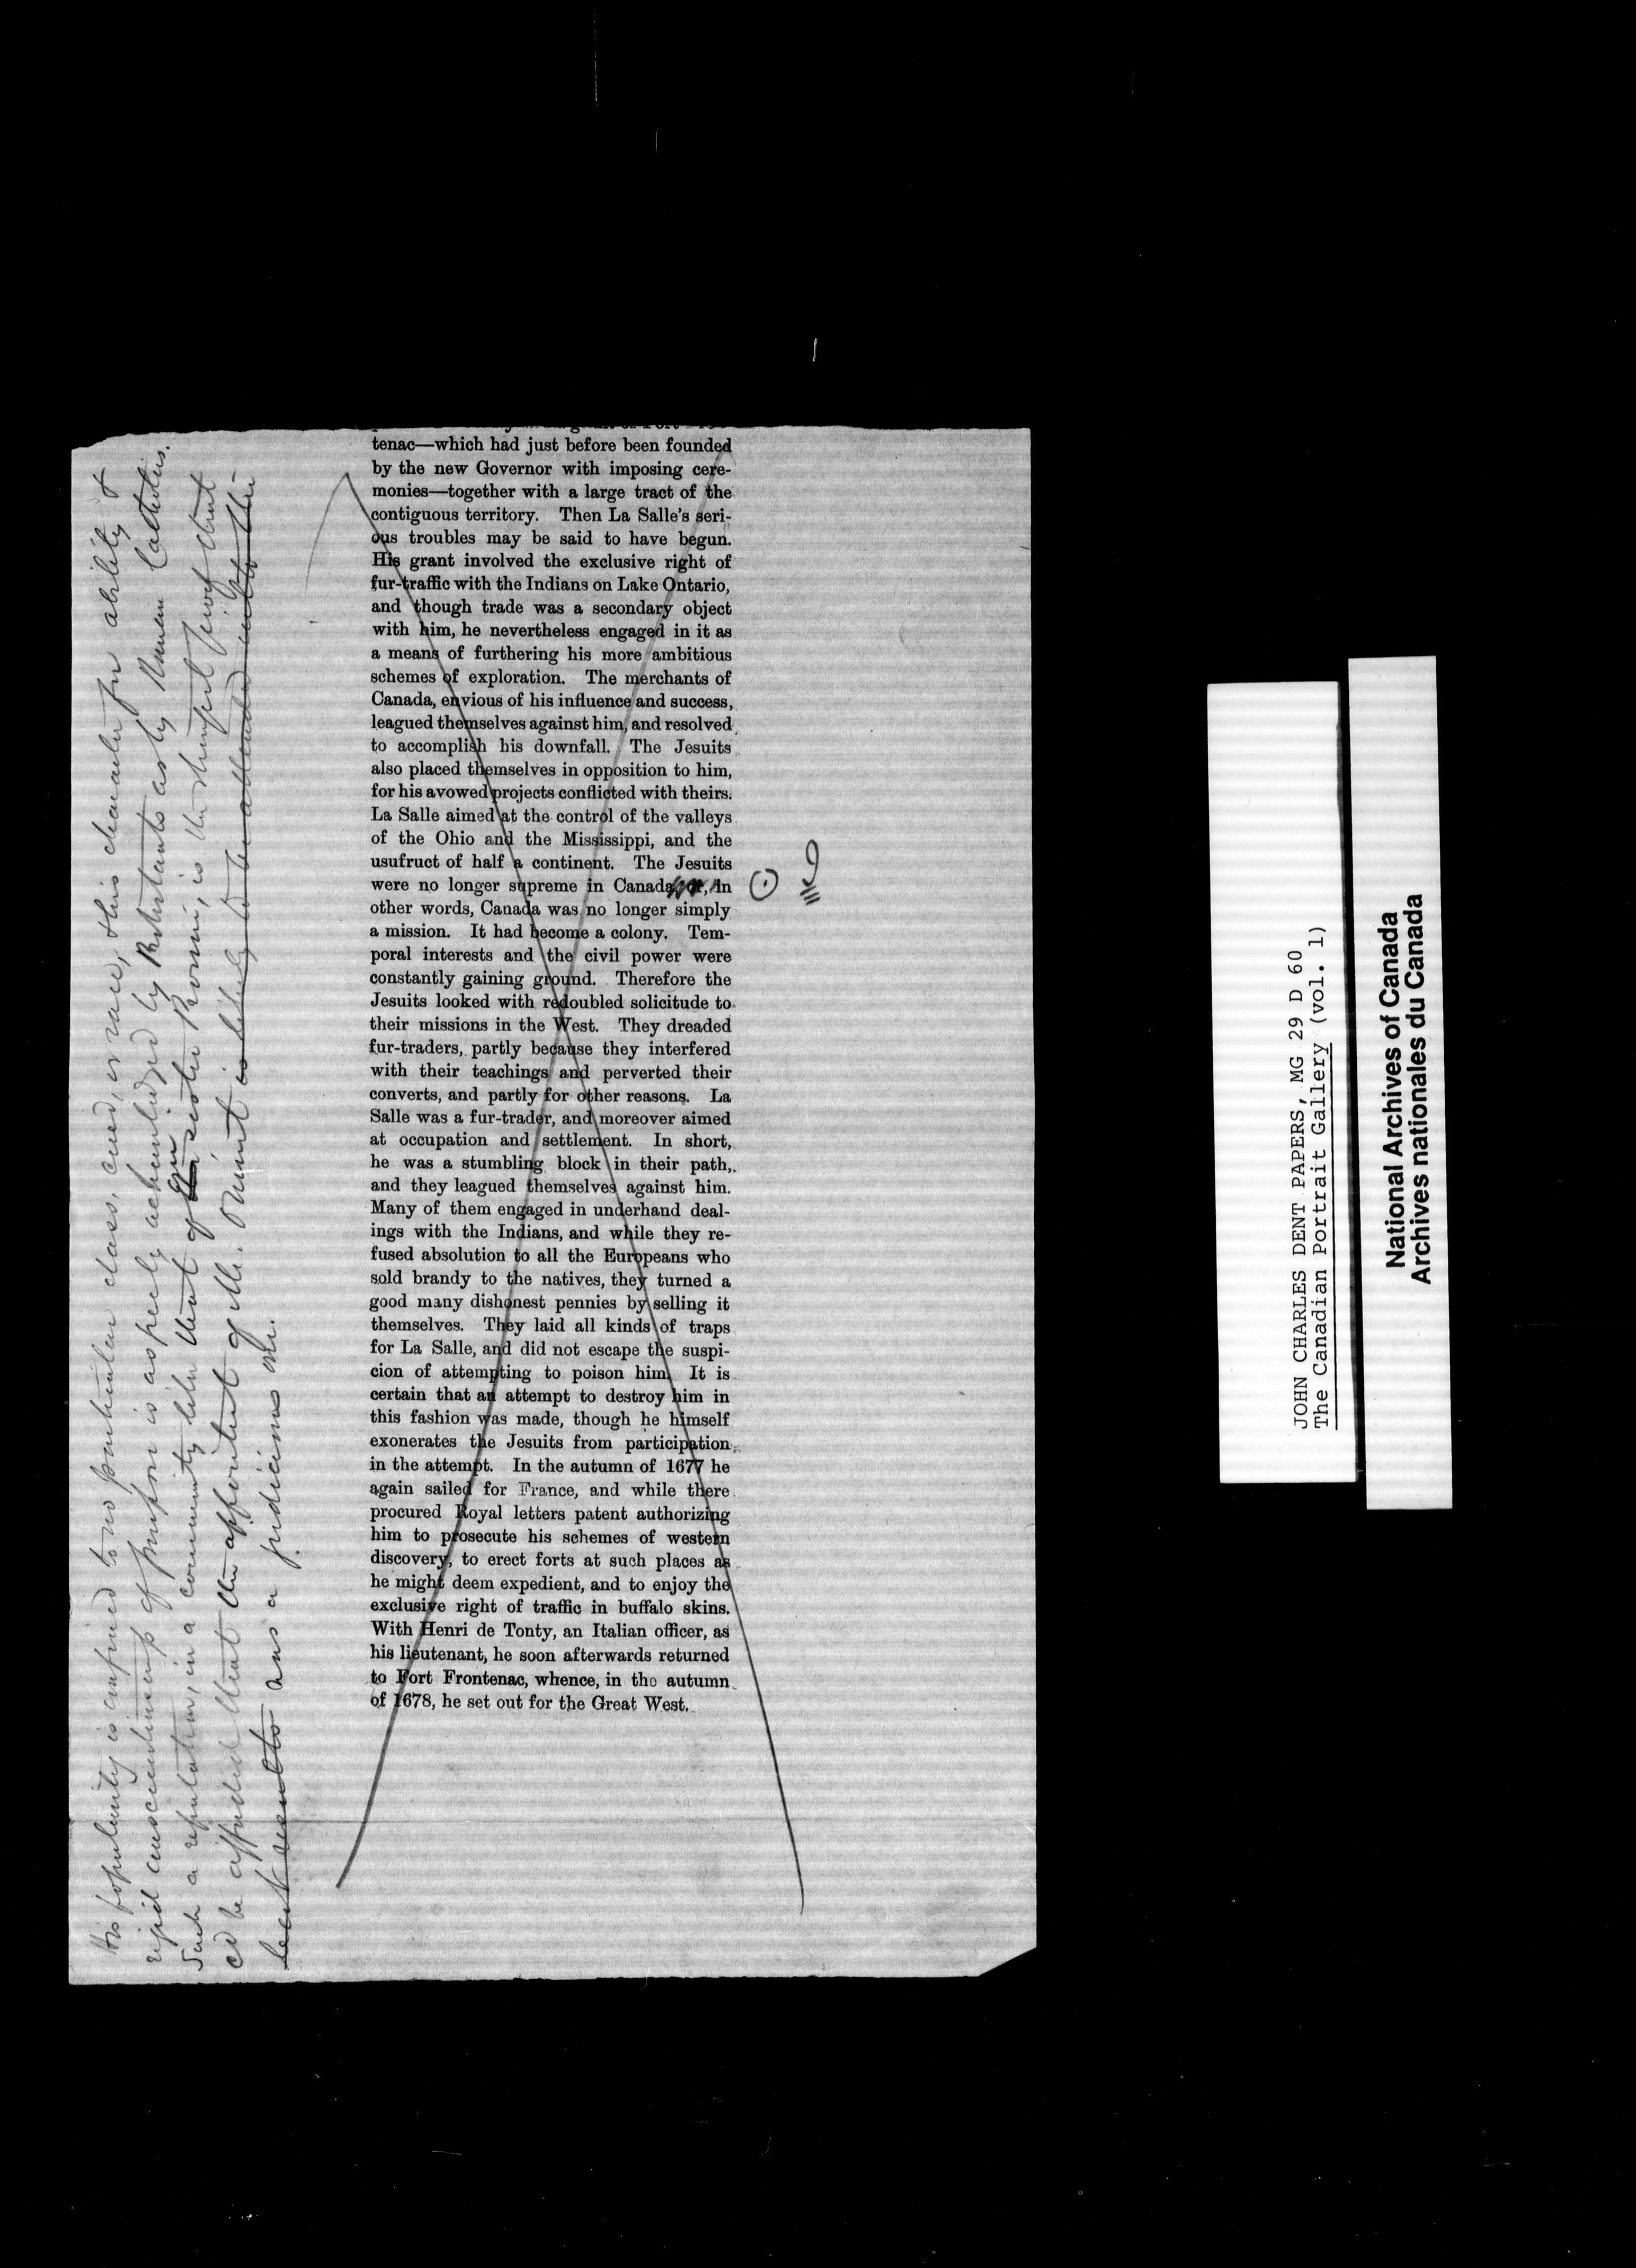 tenac—which had just before been founded
by the new Governor with imposing cere-
monies—together with a large tract of the
contiguous territory. Then La Salle's seri-
ous troubles may be said to have begun.
His grant involved the exclusive right of
fur-traffic with the Indians on Lake Ontario,
and though trade was a secondary object
with him, he nevertheless engaged in it as
a means of furthering his more ambitious
schemes of exploration. The merchants of
Canada, envious of his influence and success,
leagued themselves against him, and resolved
to accomplish his downfall. The Jesuits
also placed themselves in opposition to him,
for his avowed projects conflicted with theirs.
La Salle aimed at the control of the valleys
of the Ohio and the Mississippi, and the
usufruct of half a continent. The Jesuits
were no longer supreme in Canada, or, in
other words, Canada was no longer simply
a mission. It had become a colony. Tem-
poral interests and the civil power were
constantly gaining ground. Therefore the
Jesuits looked with redoubled solicitude to
their missions in the West. They dreaded
fur-traders, partly because they interfered
with their teachings and perverted their
converts, and partly for other reasons. La
Salle was a fur-trader, and moreover aimed
at occupation and settlement. In short,
he was a stumbling block in their path,
and they leagued themselves against him.
Many of them engaged in underhand deal-
ings with the Indians, and while they re-
fused absolution to all the Europeans who
sold brandy to the natives, they turned a
good many dishonest pennies by selling it
themselves. They laid all kinds of traps
for La Salle, and did not escape the suspi-
cion of attempting to poison him. It is
certain that an attempt to destroy him in
this fashion was made, though he himself
exonerates the Jesuits from participation
in the attempt. In the autumn of 1677 he
again sailed for France, and while there
procured Royal letters patent authorizing
him to prosecute his schemes of western
discovery, to erect forts at such places as
he might deem expedient, and to enjoy the
exclusive right of traffic in buffalo skins.
With Henri de Tonty, an Italian officer, as
his lieutenant, he soon afterwards returned
to Fort Frontenac, whence, in the autumn
of 1678, he set out for the Great West.
His popularity is confined to no particular class, creed, or race, & his character for ability &
rigid conscientiousness of purpose is as freely acknowledged by Protestants as by Roman Catholics.
Such a reputation, in a community like that of our sister Province, is the strongest proof that
cd be afforded that the appointment of Mr. is likely to be attended with the
best results was a judicious one.
JOHN CHARLES DENT PAPERS, MG 29 D 60
The Canadian Portrait Gallery (vol. 1)
National Archives of Canada
Archives nationales du Canada